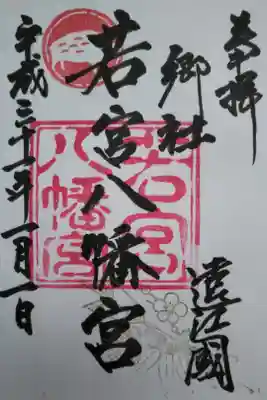 奉拝
遠江國
郷社
若宮八幡宮
若宮
八幡宮
平成三十一年一月一日